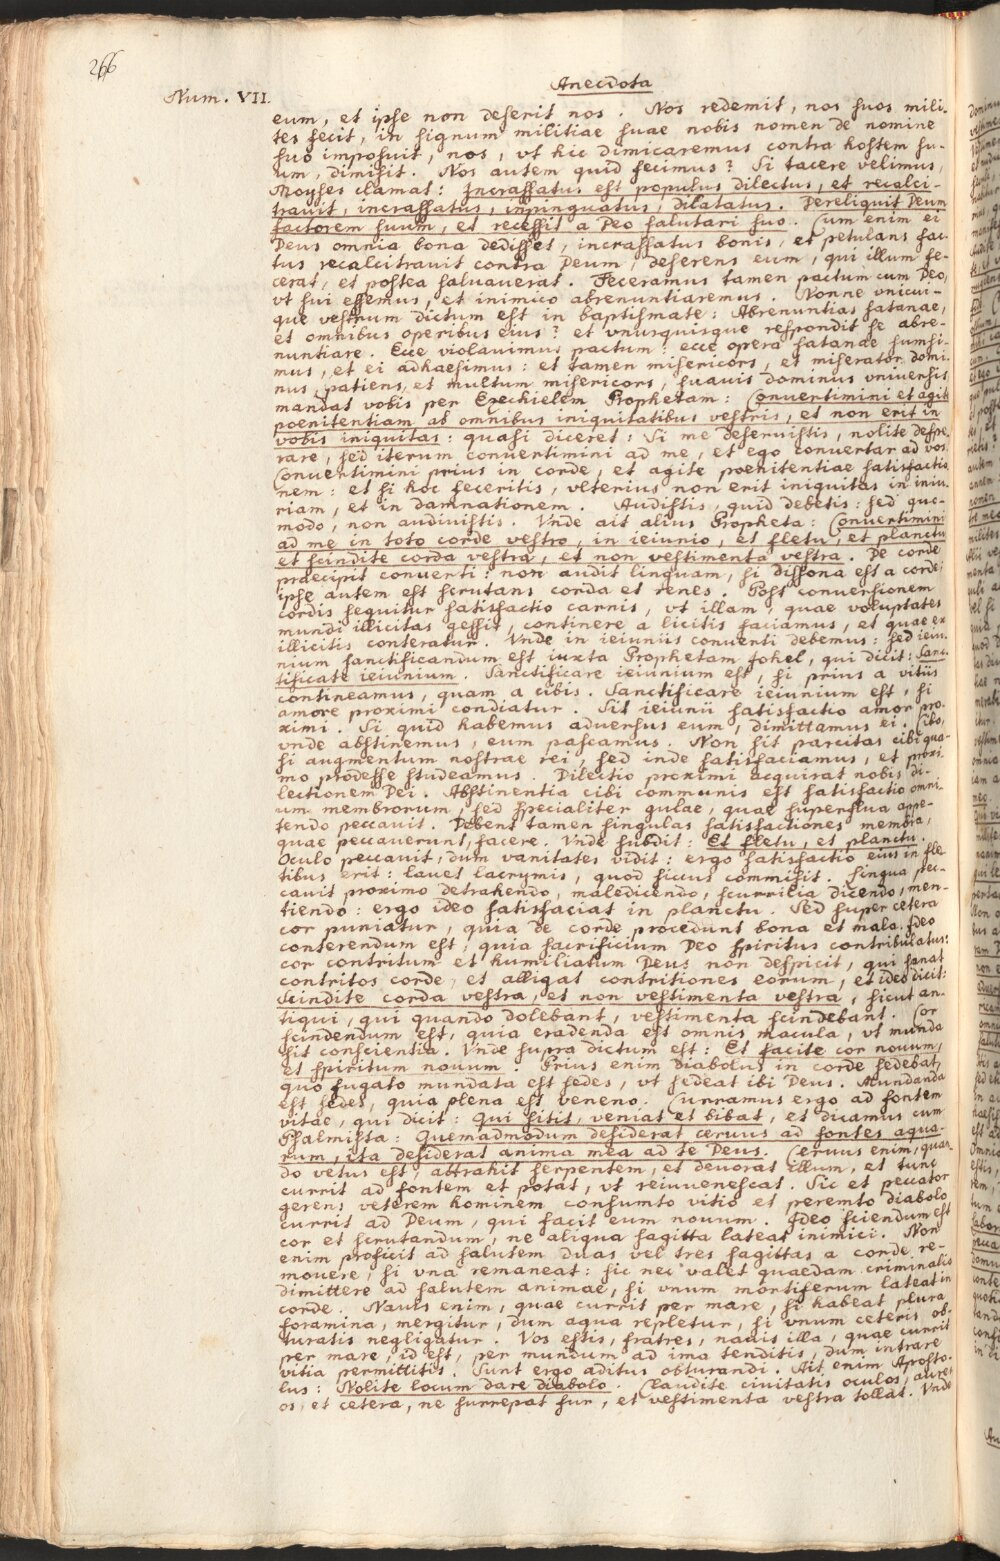 266
Anecdota
Num. VII.
eum, et ipse non deserit nos. Nos redemit, nos suos mili-
tes fecit, in signum militiae suae nobis nomen de nomine
suo imposuit, nos, vt hic dimicaremus contra hostem su-
um, dimisit. Nos autem quid fecimus? Si tacere velimus,
Moyses clamat: Incrassatus est populus dilectus, et recalci-
trauit, incrassatus, inpinguatus, dilatatus. Dereliquit Deum
factorem suum, et recessit a Deo salutari suo. Cum enim ei
Deus omnia bona dedisset, incrassatus bonis, et petulans fac-
tus recalcitrauit contra Deum, deserens eum, qui illum fe-
cerat, et postea saluauerat. Feceramus tamen pactum cum Deo,
vt sui essemus, et inimico abrenuntiaremus. Nonne vnicui-
que vestrum dictum est in baptismate: Abrenuntias satanae,
et omnibus operibus eius? et vnusquisque respondit se abre-
nuntiare. Ecce violauimus pactum: ecce opera satanae sumsi-
mus, et ei adhaesimus: et tamen misericors, et miserator domi-
nus, patiens, et multum misericors, suauis dominus vniuersis
mandat vobis per Ezechielem Prophetam: Conuertimini et agite
poenitentiam ab omnibus iniquitatibus vestris, et non erit in
vobis iniquitas: quasi diceret: Si me deseruistis, nolite despe-
rare, sed iterum conuertimini ad me, et ego conuertar ad vos.
Conuertimini prius in corde, et agite poenitentiae satisfactio-
nem: et si hoc feceritis, vlterius non erit iniquitas in iniu-
riam, et in damnationem. Audistis, quid debetis: sed quo-
modo, non audiuistis. Vnde ait alius Propheta: Conuertimini
ad me in toto corde vestro, in ieiunio, et fletu, et planctu
et scindite corda vestra, et non vestimenta vestra. De corde
praecipit conuerti: non audit linguam, si dissona est a corde:
ipse autem est scrutans corda et renes. Post conuersionem
cordis sequitur satisfactio carnis, vt illam, quae voluptates
mundi illicitas gessit, continere a licitis faciamus, et quae ex
illicitis conteratur. Vnde in ieiuniis conuerti debemus: sed ieiu-
nium sanctificandum est iuxta Prophetam Johel, qui dicit: Sanc-
tificate ieiunium. Sanctificare ieiunium est, si prius a vitiis
contineamus, quam a cibis. Sanctificare ieiunium est, si
amore proximi condiatur. Sit ieiunii satisfactio amor pro-
ximi. Si quid habemus aduersus eum, dimittamus ei. Cibo,
vnde abstinemus, eum pascamus. Non sit parcitas cibi qua-
si augmentum nostrae rei, sed inde satisfaciamus, et proxi-
mo prodesse studeamus. Dilectio proximi acquirat nobis di-
lectionem Dei. Abstinentia cibi communis est satisfactio omni-
um membrorum, sed specialiter gulae, quae superflua appe-
tendo peccauit. Debent tamen singulas satisfactiones membra,
quae peccauerunt, facere. Vnde subdit: Et fletu, et planctu.
Oculo peccauit, dum vanitates vidit: ergo satisfactio eius in fle-
tibus erit: lauet lacrymis, quod siccus commisit. Lingua pec-
cauit proximo detrahendo, maledicendo, scurrilia dicendo, men-
tiendo: ergo ideo satisfaciat in planctu. Sed super cetera
cor puniatur, quia de corde procedunt bona et mala. Ideo
conterendum est, quia sacrificium Deo spiritus contribulatus:
cor contritum et humiliatum Deus non despicit, qui sanat
contritos corde, et alligat contritiones eorum, et ideo dicit:
Scindite corda vestra, et non vestimenta vestra, sicut an-
tiqui, qui quando dolebant, vestimenta scindebant. Cor
scindendum est, quia eradenda est omnis macula, vt munda
sit conscientia. Vnde supra dictum est: Et facite cor nouum,
et spiritum nouum. Prius enim Diabolus in corde sedebat,
quo fugato mundata est sedes, vt sedeat ibi Deus. Mundanda
est sedes, quia plena est veneno. Curramus ergo ad fontem
vitae, qui dicit: Qui sitit, veniat et bibat, et dicamus cum
Psalmista: Quemadmodum desiderat ceruus ad fontes aqua-
rum, ita desiderat anima mea ad te Deus. Ceruus enim, quan-
do vetus est, attrahit serpentem, et deuorat illum, et tunc
currit ad fontem et potat, vt reiuuenescat. Sic et peccator
gerens veterem hominem consumto vitio et peremto diabolo
currit ad Deum, qui facit eum nouum. Ideo sciendum est
cor et scrutandum, ne aliqua sagitta lateat inimici. Non
enim proficit ad salutem duas vel tres sagittas a corde re-
mouere, si vna remaneat: sic nec valet quaedam criminalia
dimittere ad salutem animae, si vnum mortiferum lateat in
corde. Nauis enim, quae currit per mare, si habeat plura
foramina, mergitur, dum aqua repletur, si vnum ceteris ob-
turatis negligatur. Vos estis, fratres, nauis illa, quae currit
per mare, id est, per mundum ad ima tenditis, dum intrare
vitia permittitis. Sunt ergo aditus obturandi. Ait enim Aposto-
lus: Nolite locum dare diabolo. Claudite ciuitatis oculos, aures
os, et cetera, ne surrepat fur, et vestimenta vestra tollat. Vnde